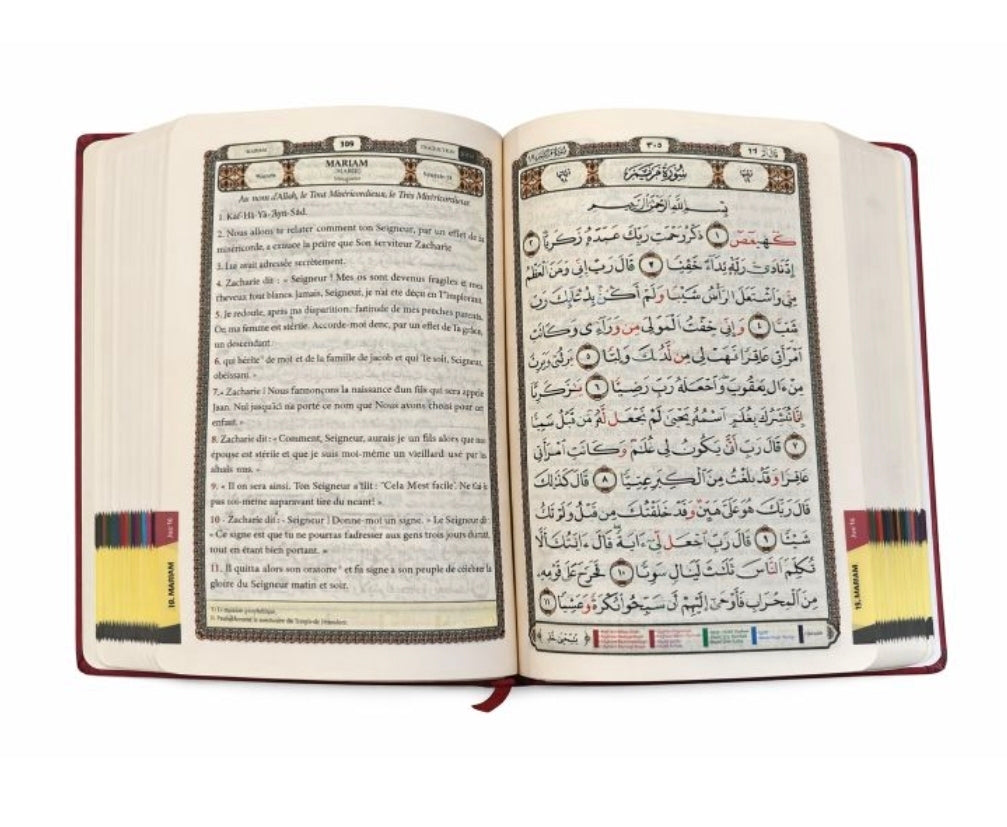 MARIAM
109
TRADUCTION
MARIAM
(MARIE)
Au nom d'Allah, le Tout Miséricordieux, le Très Miséricordieux
1. Kâf-Hâ-Yâ-'Ayn-Sâd.
2. Nous allons te relater comment ton Seigneur, par un effet de la
miséricorde, a exaucé la prière que Son serviteur Zacharie
3. Lui avait adressée secrètement.
4. Zacharie dit : « Seigneur ! Mes os sont devenus fragiles et mes
cheveux tout blancs. Jamais, Seigneur, je n'ai été déçu en
5. Je redoute, après ma disparition, de mes proches parents.
Or, ma femme est stérile. Accorde-moi donc, par un effet de Ta grâce,
un descendant
6. qui hérite de moi et de la famille de Jacob et qui Te soit, Seigneur,
obéissant.
7. « Zacharie ! Nous t'annonçons la naissance d'un fils qui sera appelé
Jaan. Nul jusqu'ici ne porte ce nom que Nous avons choisi pour
enfant. »
8. Zacharie dit : « Comment, Seigneur, aurais je un fils alors que ma
épouse est stérile et que je suis moi-même un vieillard usé par
ans. »
9. « Il en sera ainsi. Ton Seigneur a dit : "Cela M'est facile". Ne t'ai-je
pas toi-même auparavant tiré du néant? »
10 - Zacharie dit : « Seigneur ! Donne-moi un signe. » Le Seigneur dit:
« Ce signe est que tu ne pourras t'adresser aux gens trois jours durant,
tout en étant bien portant. »
11. Il quitta alors son oratoire et fit signe à son peuple de célébrer la
gloire du Seigneur matin et soir.
Juz 16
19. MARIAM
٣٠٥
سُورَةُ مَرْيَمَ
بِسْمِ اللَّهِ الرَّحْمَٰنِ الرَّحِيمِ
كٓهيعٓصٓ ١ ذِكْرُ رَحْمَتِ رَبِّكَ عَبْدَهُ زَكَرِيَّا ٢
إِذْ نَادَىٰ رَبَّهُ نِدَاءً خَفِيًّا ٣ قَالَ رَبِّ إِنِّي وَهَنَ الْعَظْمُ
مِنِّي وَاشْتَعَلَ الرَّأْسُ شَيْبًا وَلَمْ أَكُنْ بِدُعَائِكَ رَبِّ
شَقِيًّا ٤ وَإِنِّي خِفْتُ الْمَوَالِيَ مِنْ وَرَاءِي وَكَانَتِ
امْرَأَتِي عَاقِرًا فَهَبْ لِي مِنْ لَدُنْكَ وَلِيًّا ٥ يَرِثُنِي وَيَرِثُ
مِنْ ءَالِ يَعْقُوبَ وَاجْعَلْهُ رَبِّ رَضِيًّا ٦ يَٰزَكَرِيَّا
إِنَّا نُبَشِّرُكَ بِغُلَٰمٍ اسْمُهُ يَحْيَىٰ لَمْ نَجْعَل لَّهُ مِن قَبْلُ سَمِيًّا
٧ قَالَ رَبِّ أَنَّىٰ يَكُونُ لِي غُلَٰمٌ وَكَانَتِ امْرَأَتِي
عَاقِرًا وَقَدْ بَلَغْتُ مِنَ الْكِبَرِ عِتِيًّا ٨ قَالَ كَذَٰلِكَ
قَالَ رَبُّكَ هُوَ عَلَيَّ هَيِّنٌ وَقَدْ خَلَقْتُكَ مِن قَبْلُ وَلَمْ تَكُ
شَيْئًا ٩ قَالَ رَبِّ اجْعَل لِّي ءَايَةً قَالَ ءَايَتُكَ أَلَّا
تُكَلِّمَ النَّاسَ ثَلَٰثَ لَيَالٍ سَوِيًّا ١٠ فَخَرَجَ عَلَىٰ قَوْمِهِ
مِنَ الْمِحْرَابِ فَأَوْحَىٰ إِلَيْهِمْ أَن سَبِّحُوا بُكْرَةً وَعَشِيًّا ١١
Juz 16
19. MARIAM